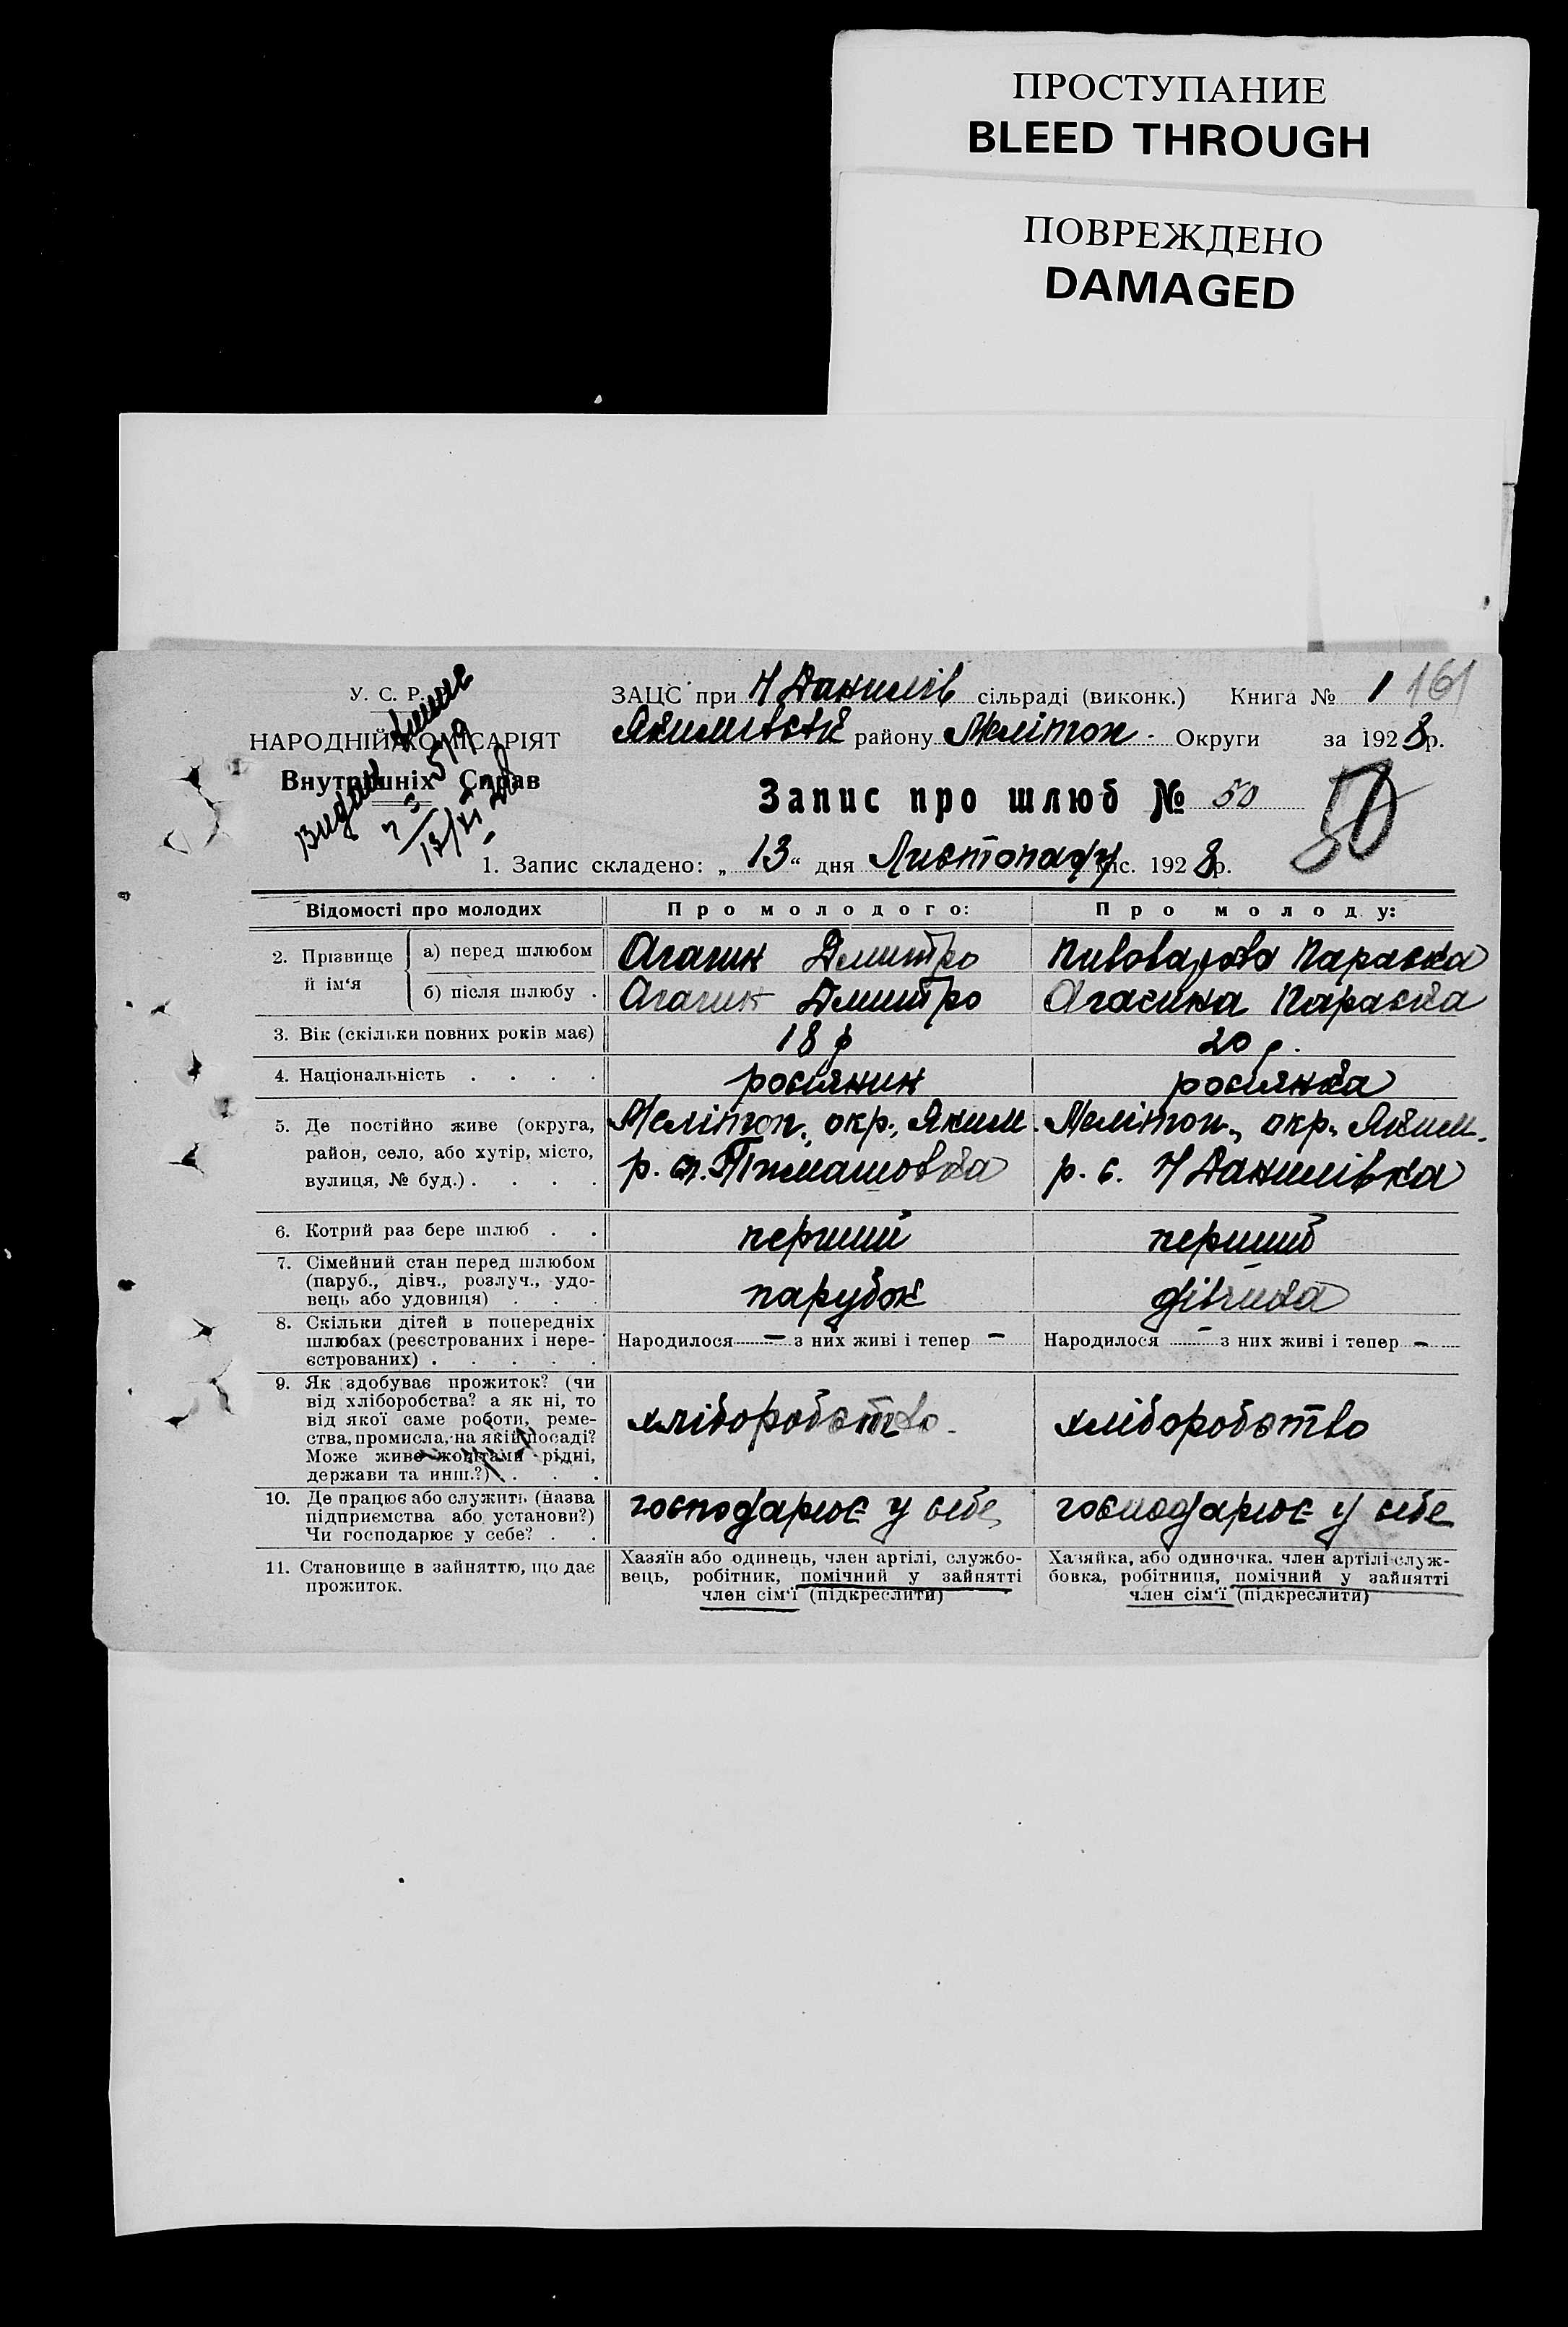 ПРОСТУПАНИЕ
BLEED THROUGH
ПОВРЕЖДЕНО
DAMAGED
У. С. Р.
НАРОДНІЙ КОМІСАРІЯТ
Внутрішніх Справ
Видан
ЗАЦС при Н Данилів сільраді (виконк.) Книга № 1 161
району Меліtоп. Округи за 1928 р.
Запис про шлюб № 50 50
1. Запис складено: „13“ дня Листопаду міс. 1928 р.
Відомості про молодих Про молодого: Про молоду:
2. Прізвище й ім‘я
а) перед шлюбом Агагин Дмитро Пивоварова Параска
б) після шлюбу . Агагин Дмитро Агасина Параска
3. Вік (скільки повних років має) 18 р 20 р.
4. Національність . . . . росіянин росіянка
5. Де постійно живе (округа, Меліton., окр., Яким. Меліton., окр., Яким.
район, село, або хутір, місто, р. с. Н Данилівка
вулиця, № буд.) . . . .
6. Котрий раз бере шлюб . . перший перший
7. Сімейний стан перед шлюбом
(паруб., дівч., розлуч., удо- парубок дівчина
вець або удовиця) . . .
8. Скільки дітей в попередніх
шлюбах (реєстрованих і нере- Народилося — з них живі і тепер — Народилося — з них живі і тепер —
єстрованих) . . . . .
9. Як здобуває прожиток? (чи
від хліборобства? а як ні, то
від якої саме роботи, реме- хліборобство. хліборобство
ства, промисла, на якій посаді?
Може живе коштами рідні,
держави та инш.?) . . .
10. Де працює або служить (назва господарює у себе господарює у себе
підприємства або установи?)
Чи господарює у себе? . .
11. Становище в зайняттю, що дає Хазяїн або одинець, член артілі, службо- Хазяйка, або одиночка, член артілі служ-
прожиток. вець, робітник, помічний у зайнятті бовка, робітниця, помічний у зайнятті
член сім‘ї (підкреслити) член сім‘ї (підкреслити)